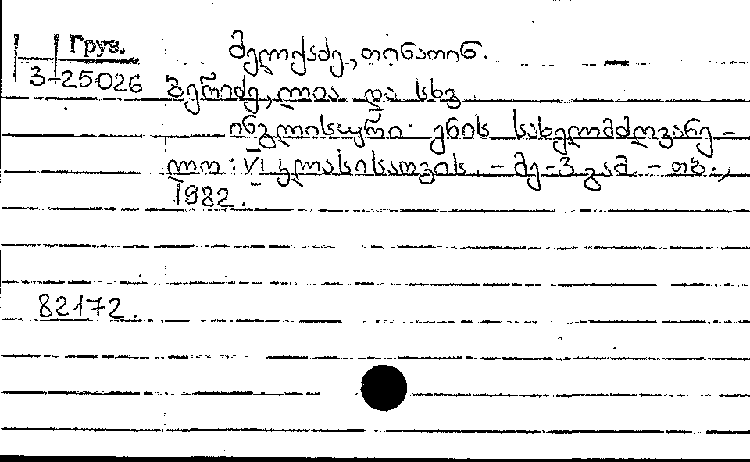 Груз.
3-25026
მელქაძე, თინათინ.
ბერიძე, ლია და სხვ.
ინგლისური ენის სახელმძღვანე-
ლო: VI კლასისათვის. – მე-3 გამ. – თბ.,
1982.
82172.